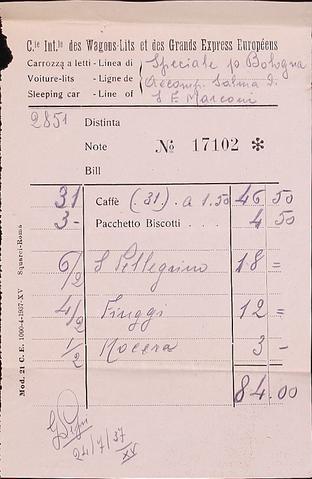 C.ie Int.le des Wagons-Lits et des Grands Express Européens
Carrozza a letti - Linea di Speciale p Bologna
Voiture-lits - Ligne de Accomp. Salma di
Sleeping car - Line of S E Marconi
2851 Distinta
Note No 17102 *
Bill
31 Caffè (. 31.) a 1.50 46 50
3- Pacchetto Biscotti . . . 4 50
6/2 S Pellegrino 18 =
4/2 Fiuggi 12 =
1/2 Nocera 3 -
84.00
24/7/37
XV
Mod. 21 C. E. 1000-4-1937-XV Squarci-Roma